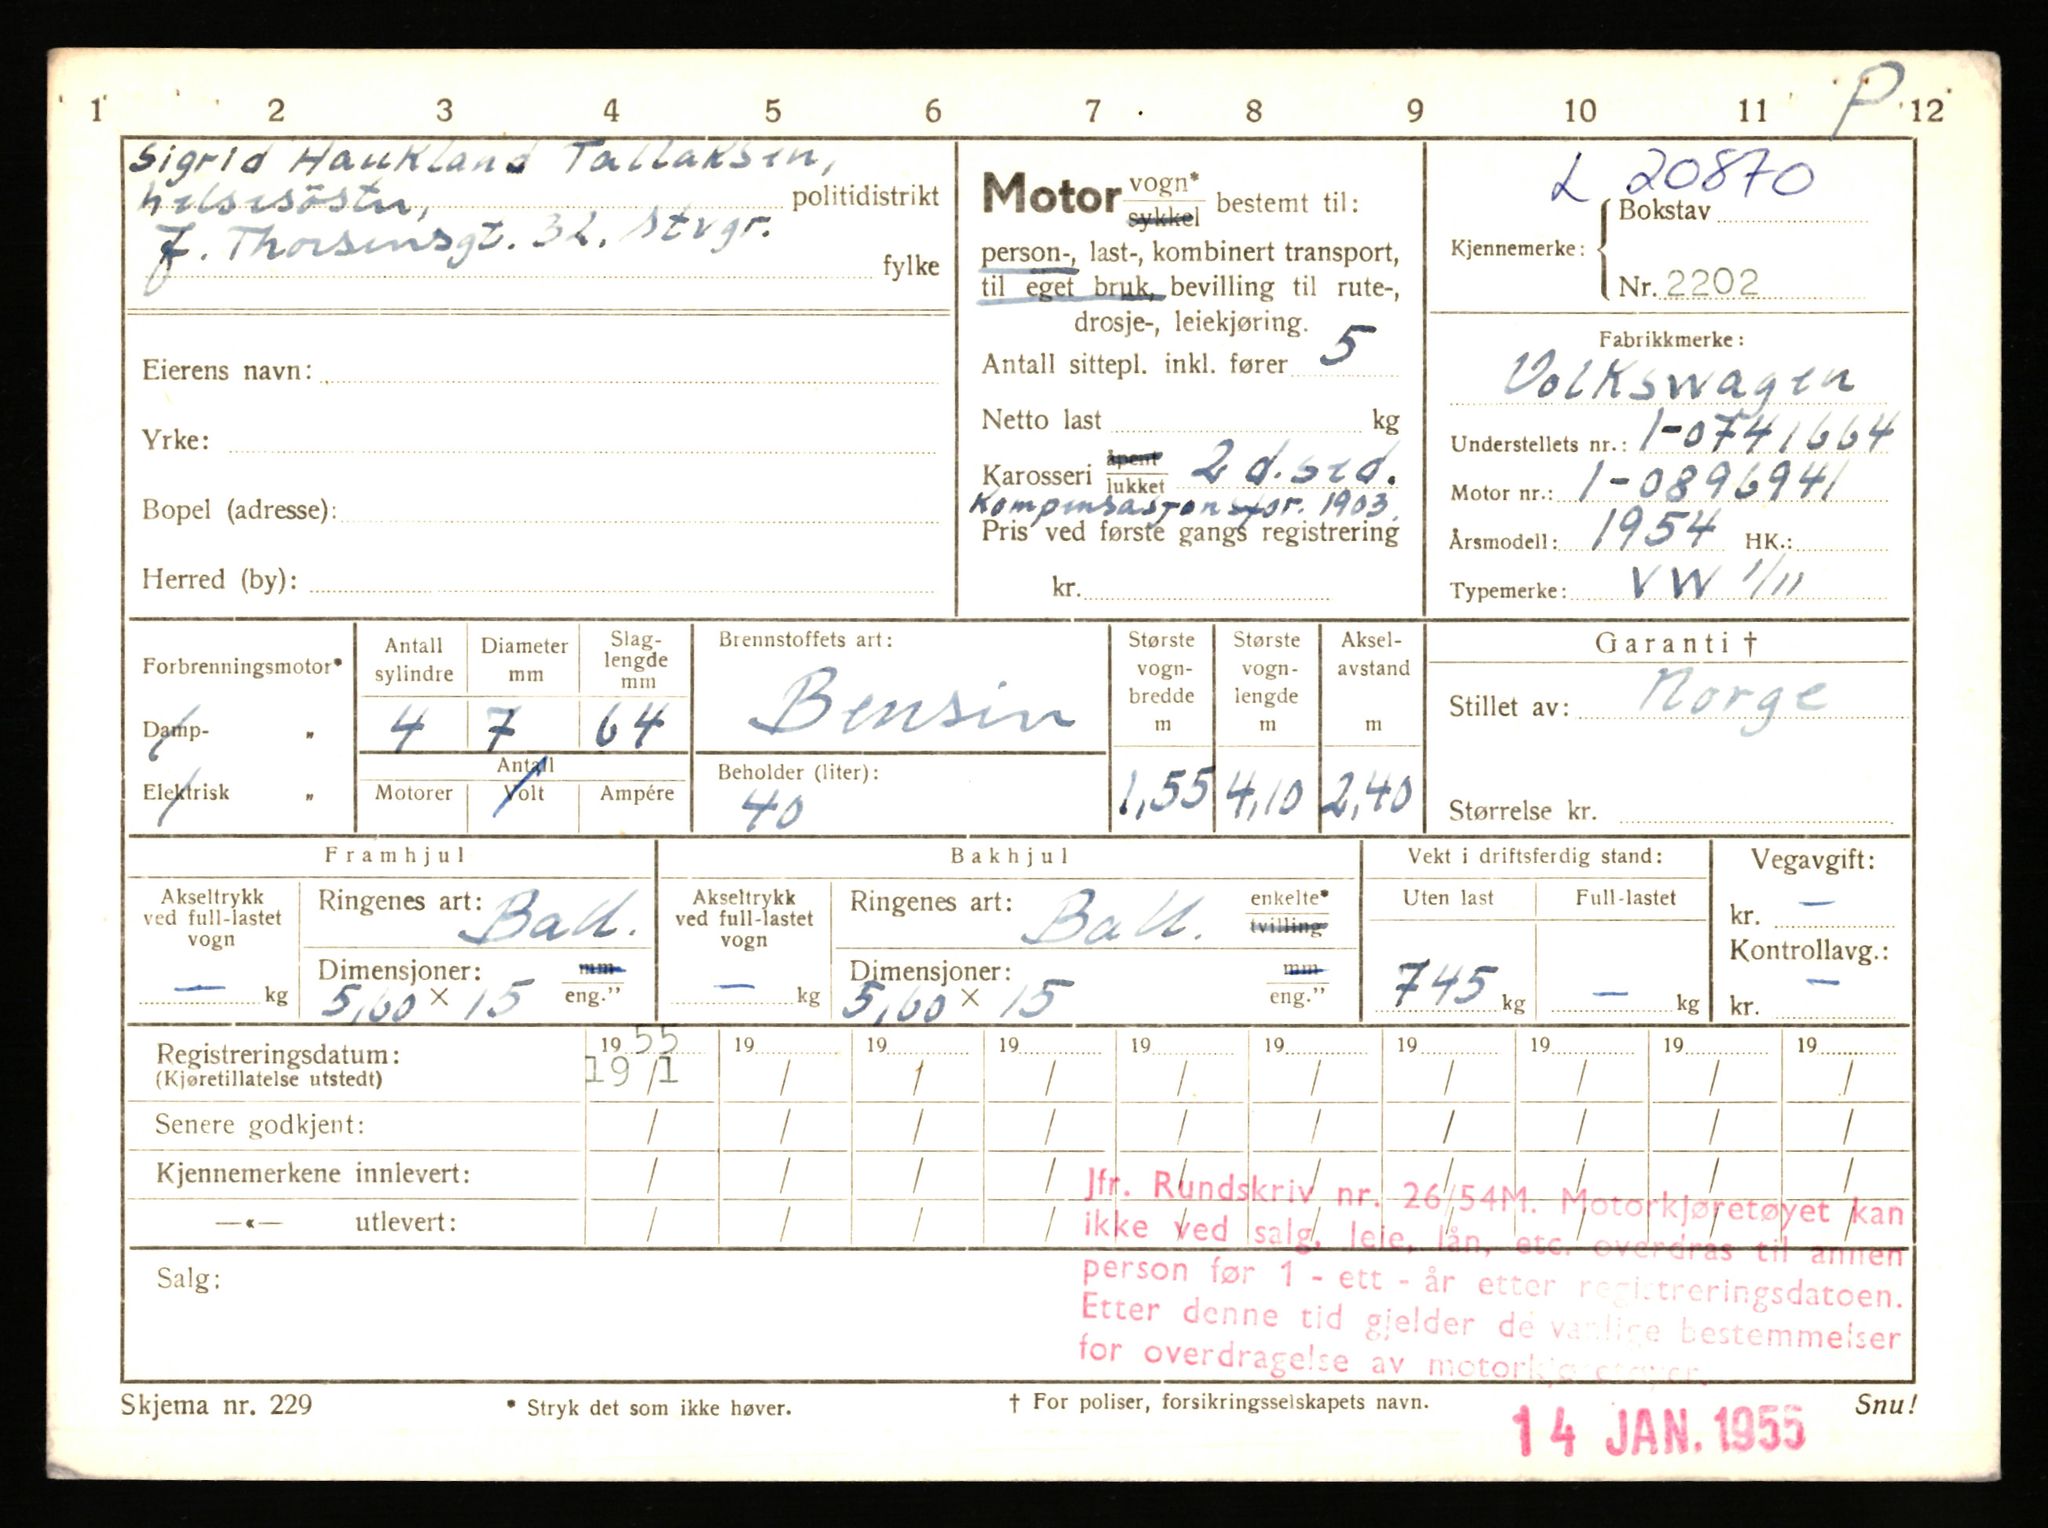 1 2 3 4 5 6 7 8 9 10 11 12
P
Sigrid Haukland Tallaksen,
helsesöster, politidistrikt
J. Thorsensgt. 32. Stvgr.
fylke
Eierens navn:
Yrke:
Bopel (adresse):
Herred (by):
Motor vogn* sykkel bestemt til:
person-, last-, kombinert transport,
til eget bruk, bevilling til rute-,
drosje-, leiekjøring.
Antall sittepl. inkl. fører 5
Netto last kg
Karosseri åpent lukket 2 d. sed.
Kompensasjonsfor. 1903.
Pris ved første gangs registrering
kr.
L 20870
Kjennemerke: Bokstav
Nr. 2202
Fabrikkmerke:
Volkswagen
Understellets nr.: 1-0741664
Motor nr.: 1-0896941
Årsmodell: 1954 HK.:
Typemerke: VW 1/11
Forbrenningsmotor*
Damp- „
Elektrisk „
Antall sylindre Diameter mm Slag-lengde mm
4 7 64
Antall
Motorer Volt Ampére
Brennstoffets art:
Bensin
Beholder (liter):
40
Største vogn-bredde m Største vogn-lengde m Aksel-avstand m
1,55 4,10 2,40
Garanti †
Stillet av: Norge
Størrelse kr.
Framhjul Bakhjul Vekt i driftsferdig stand: Vegavgift:
Akseltrykk ved full-lastet vogn
— kg
Ringenes art: Ball.
Dimensjoner: mm
5,60 × 15 eng.”
Akseltrykk ved full-lastet vogn
— kg
Ringenes art: Ball. enkelte* tvilling
Dimensjoner: mm
5,60 × 15 eng.”
Uten last Full-lastet
745 kg — kg
kr. —
Kontrollavg.:
kr. —
Registreringsdatum: 1955 19 19 19 19 19 19 19 19 19
(Kjøretillatelse utstedt) 19/1 / / / / / / / / /
Senere godkjent: / / / / / / / / / /
Kjennemerkene innlevert: / / / / / / / / / /
—«— utlevert: / / / / / / / / / /
Salg:
Jfr. Rundskriv nr. 26/54M. Motorkjøretøyet kan
ikke ved salg, leie, lån, etc. overdras til annen
person før 1 - ett - år etter registreringsdatoen.
Etter denne tid gjelder de vanlige bestemmelser
for overdragelse av motorkjøretøyer.
Skjema nr. 229 * Stryk det som ikke høver. † For poliser, forsikringsselskapets navn. Snu!
14 JAN. 1955